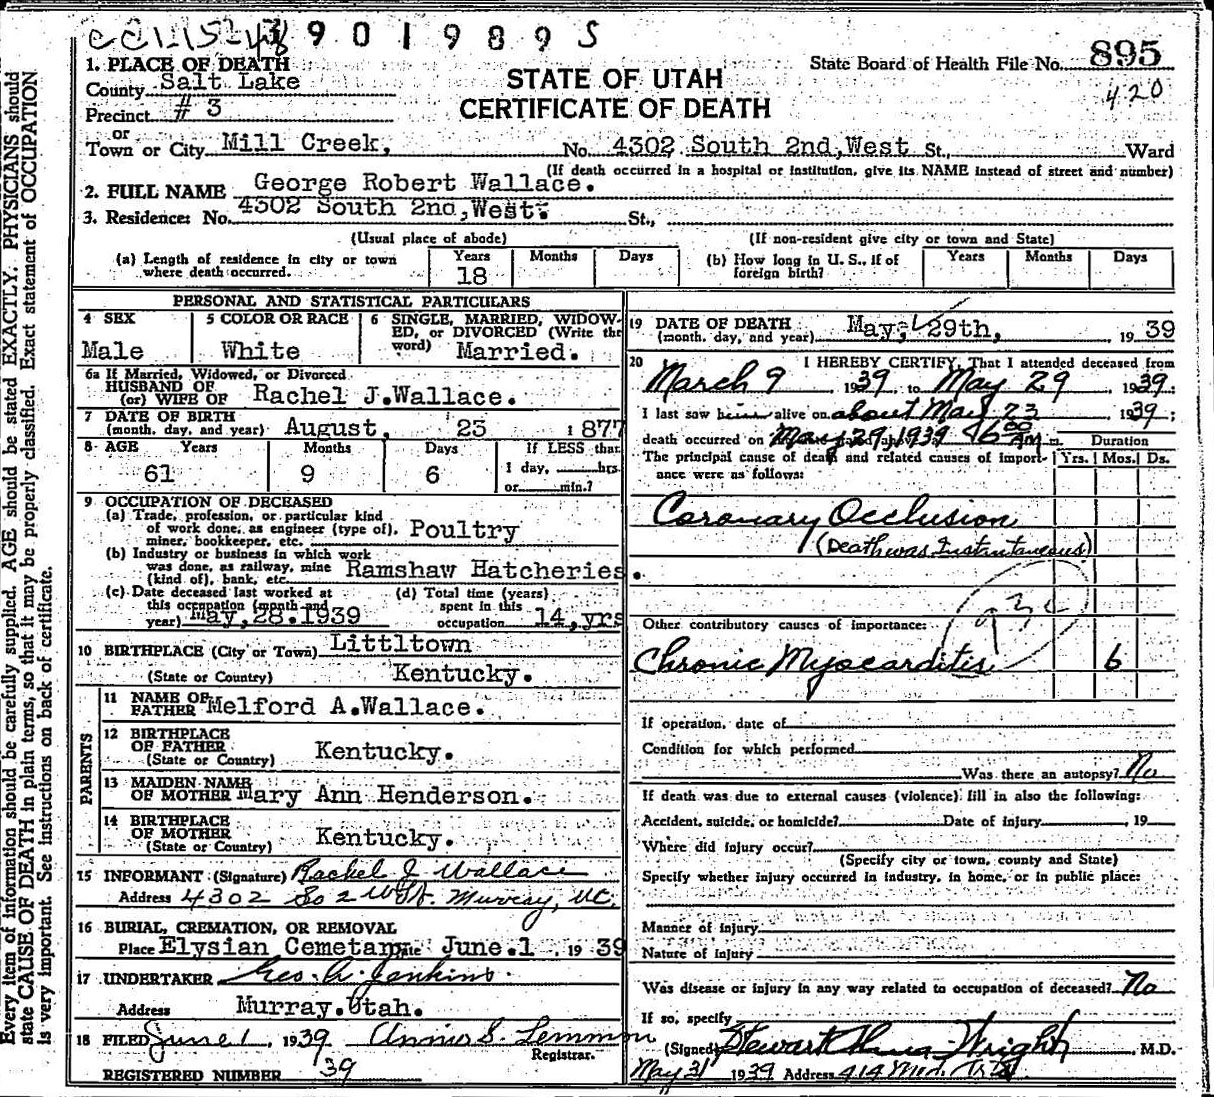 3901989 S
1. PLACE OF DEATH
County Salt Lake
Precinct # 3
or
Town or City Mill Creek, No. 4302 South 2nd,West St., Ward
STATE OF UTAH
CERTIFICATE OF DEATH
State Board of Health File No. 895
420
(If death occurred in a hospital or institution, give its NAME instead of street and number)
2. FULL NAME George Robert Wallace.
3. Residence: No. 4302 South 2nd,West. St.,
(Usual place of abode) (If non-resident give city or town and State)
(a) Length of residence in city or town where death occurred. Years 18 Months Days
(b) How long in U. S., if of foreign birth? Years Months Days
PERSONAL AND STATISTICAL PARTICULARS
4 SEX Male
5 COLOR OR RACE White
6 SINGLE, MARRIED, WIDOWED, or DIVORCED (Write the word) Married.
6a If Married, Widowed, or Divorced
HUSBAND OF
(or) WIFE OF Rachel J.Wallace.
7 DATE OF BIRTH
(month, day, and year) August, 23 1877
8 AGE Years Months Days If LESS than
61 9 6 1 day, hrs.
or min.?
9 OCCUPATION OF DECEASED
(a) Trade, profession, or particular kind
of work done, as engineer (type of), Poultry
miner, bookkeeper, etc.
(b) Industry or business in which work
was done, as railway, mine Ramshaw Hatcheries
(kind of), bank, etc.
(c) Date deceased last worked at
this occupation (month and
year) May,28.1939
(d) Total time (years)
spent in this
occupation 14,yrs
10 BIRTHPLACE (City or Town) Littltown
(State or Country) Kentucky.
PARENTS
11 NAME OF
FATHER Melford A.Wallace.
12 BIRTHPLACE
OF FATHER Kentucky.
(State or Country)
13 MAIDEN NAME
OF MOTHER Mary Ann Henderson.
14 BIRTHPLACE
OF MOTHER Kentucky.
(State or Country)
15 INFORMANT (Signature) Rachel J Wallace
Address 4302 So 2 W St. Murray,
16 BURIAL, CREMATION, OR REMOVAL
Place Elysian Cemetary Date June.1 1939
17 UNDERTAKER Geo. A. Jenkins.
Address Murray.Utah.
18 FILED June 1, 1939. Annie S. Lemmon
Registrar.
REGISTERED NUMBER 39
19 DATE OF DEATH
(month, day, and year) May, 29th, 1939
20 I HEREBY CERTIFY, That I attended deceased from
March 9 1939 to May 29 1939;
I last saw him alive on about May 23 1939;
death occurred on May 29, 1939 6 00 AM m.
The principal cause of death and related causes of importance were as follows:
Duration
Yrs. Mos. Ds.
Coronary Occlusion
(Death was Instantaneous)
Other contributory causes of importance:
Chronic Myocarditis 6
If operation, date of
Condition for which performed
Was there an autopsy? No
If death was due to external causes (violence) fill in also the following:
Accident, suicide, or homicide? Date of injury 19
Where did injury occur?
(Specify city or town, county and State)
Specify whether injury occurred in industry, in home, or in public place:
Manner of injury
Nature of injury
Was disease or injury in any way related to occupation of deceased? No
If so, specify
(Signed) Stewart Wright, M.D.
May 31 1939 Address 414 Med.
Every item of information should be carefully supplied. AGE should be stated EXACTLY. PHYSICIANS should
state CAUSE OF DEATH in plain terms, so that it may be properly classified. Exact statement of OCCUPATION
is very important. See instructions on back of certificate.